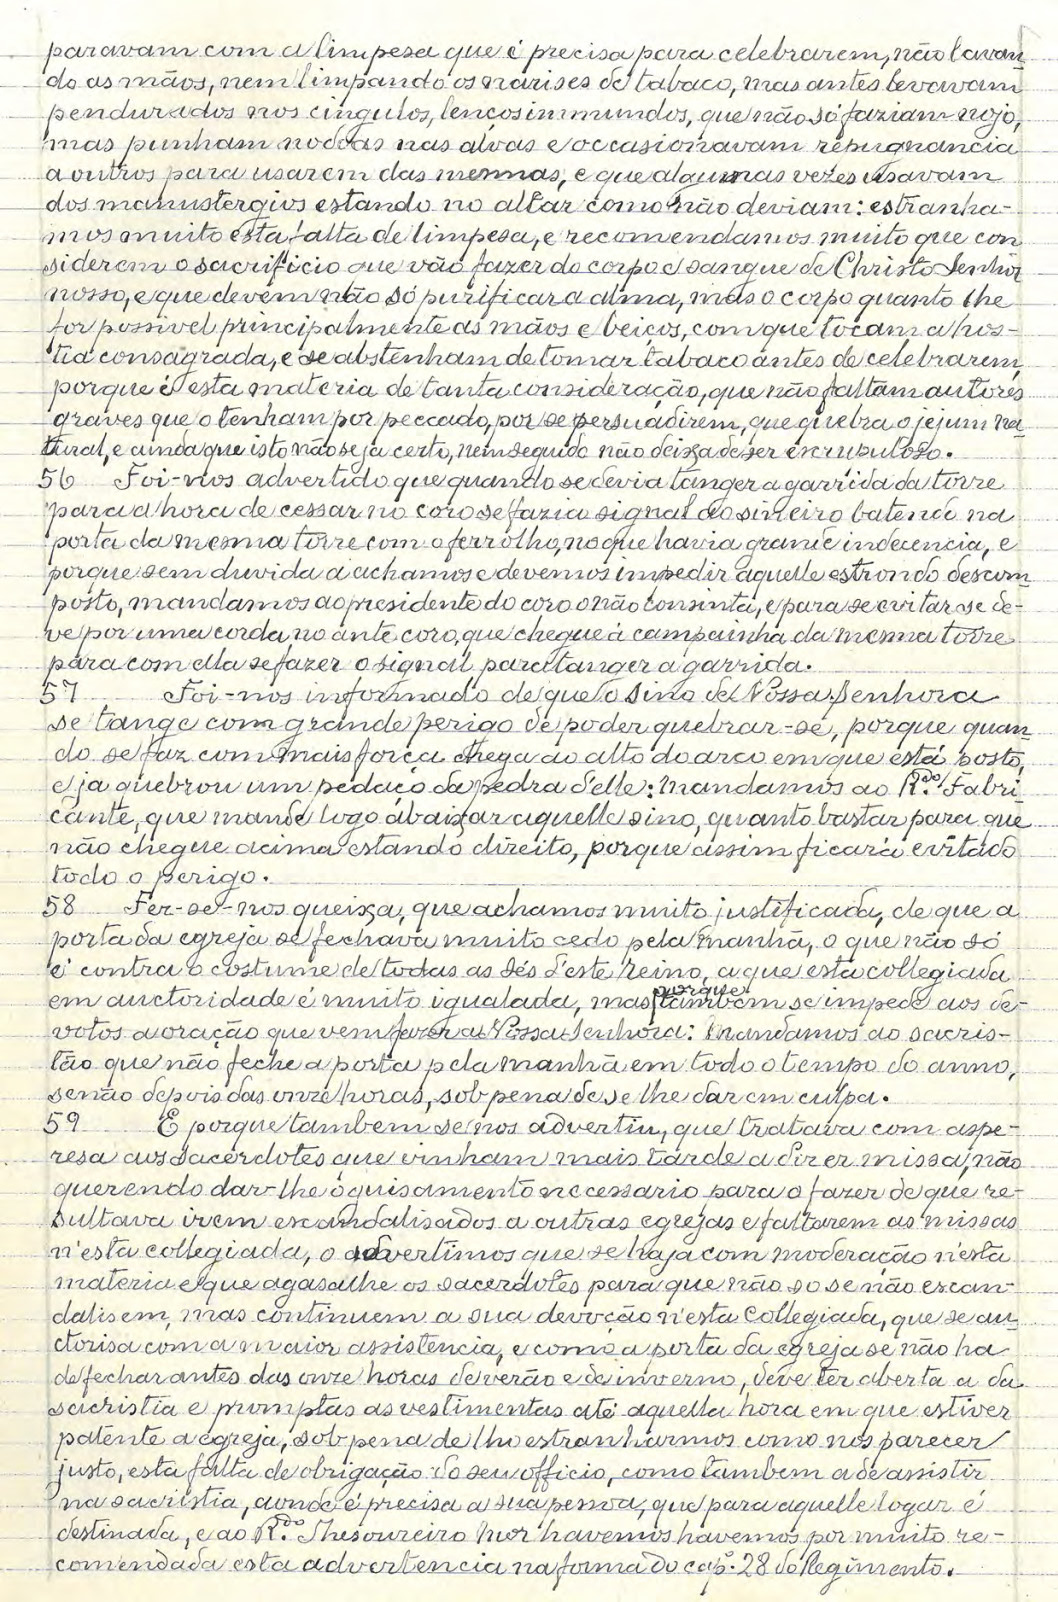 paravam com a limpesa que é precisa para celebrarem, não lavan
do as mãos, nem limpando os narises de tabaco, mas antes levavam
pendurados nos cingulos, lenços immundos, que não só faziam nojo,
mas punham nodoas nas alvas e occasionavam repugnancia
a outros para usarem das mesmas, e que algumas vezes usavam
dos manustergios estando no altar como não deviam: estranha-
mos muito esta falta de limpesa, e recomendamos muito que con
siderem o sacrificio que vão fazer do corpo e sangue de Christo Senhor
nosso, e que devem não só purificar a alma, mas o corpo quanto lhe
for possivel principalmente as mãos e beiços, com que tocam a hos-
tia consagrada, e se abstenham de tomar tabaco antes de celebrarem,
porque é esta materia de tanta consideração, que não faltam autores
graves que o tenham por peccado, por se persuadirem, que quebra o jejum na
tural, e ainda que isto não seja certo, nem seguido não deixa de ser escrupuloso.
56 Foi-nos advertido que quando se devia tanger a garrida da torre
para a hora de cessar no coro se fazia signal ao sineiro batendo na
porta da mesma torre com o ferrolho, no que havia grande indecencia, e
porque sem duvida a achamos e devemos impedir aquelle estrondo descom
posto, mandamos ao presidente do coro o não consinta, e para se evitar se de-
ve por uma corda no ante coro, que chegue á campainha da mesma torre
para com ella se fazer o signal para tanger a garrida.
57 Foi-nos informado de que o sino de Nossa Senhora
se tange com grande perigo de poder quebrar-se, porque quan
do se faz com mais força chega ao alto do arco em que está posto,
e ja quebrou um pedaço da pedra d'elle: mandamos ao R.do Fabri-
cante, que mande logo abaixar aquelle sino, quanto bastar para que
não chegue acima estando direito, porque assim ficará evitado
todo o perigo.
58 Fer-se-nos queixa, que achamos muito justificada, de que a
porta da egreja se fechava muito cedo pela manhã, o que não só
é contra o costume de todas as sés d'este reino, a que esta collegiada
em auctoridade é muito igualada, mas porque tambem se impede aos de-
votos a oração que vem fazer a Nossa Senhora: Mandamos ao sacris-
tão que não feche a porta pela manhã em todo o tempo do anno,
senão depois das onze horas, sob pena de se lhe dar em culpa.
59 E porque tambem se nos advertiu, que tratava com aspe-
resa aos sacerdotes que vinham mais tarde a dizer missa, não
querendo dar-lhe o guisamento necessario para o fazer de que re-
sultava irem escandalisados a outras egrejas e faltarem as missas
n'esta collegiada, o advertimos que se haja com moderação n'esta
materia e que agasalhe os sacerdotes para que não so se não escan-
dalisem, mas continuem a sua devoção n'esta Collegiada, que se au-
ctorisa com a maior assistencia, e como a porta da egreja se não ha
de fechar antes das onze horas de verão e de inverno, deve ter aberta a da
sacristia e promptas as vestimentas até aquella hora em que estiver
patente a egreja, sob pena de lho estranharmos como nos parecer
justo, esta falta de obrigação do seu officio, como tambem a de assistir
na sacristia, aonde é precisa a sua pessoa, que para aquelle logar é
destinada, e ao R.do Thesoureiro Mor havemos havemos por muito re-
comendada esta advertencia na forma do cap.º 28 do Regimento.